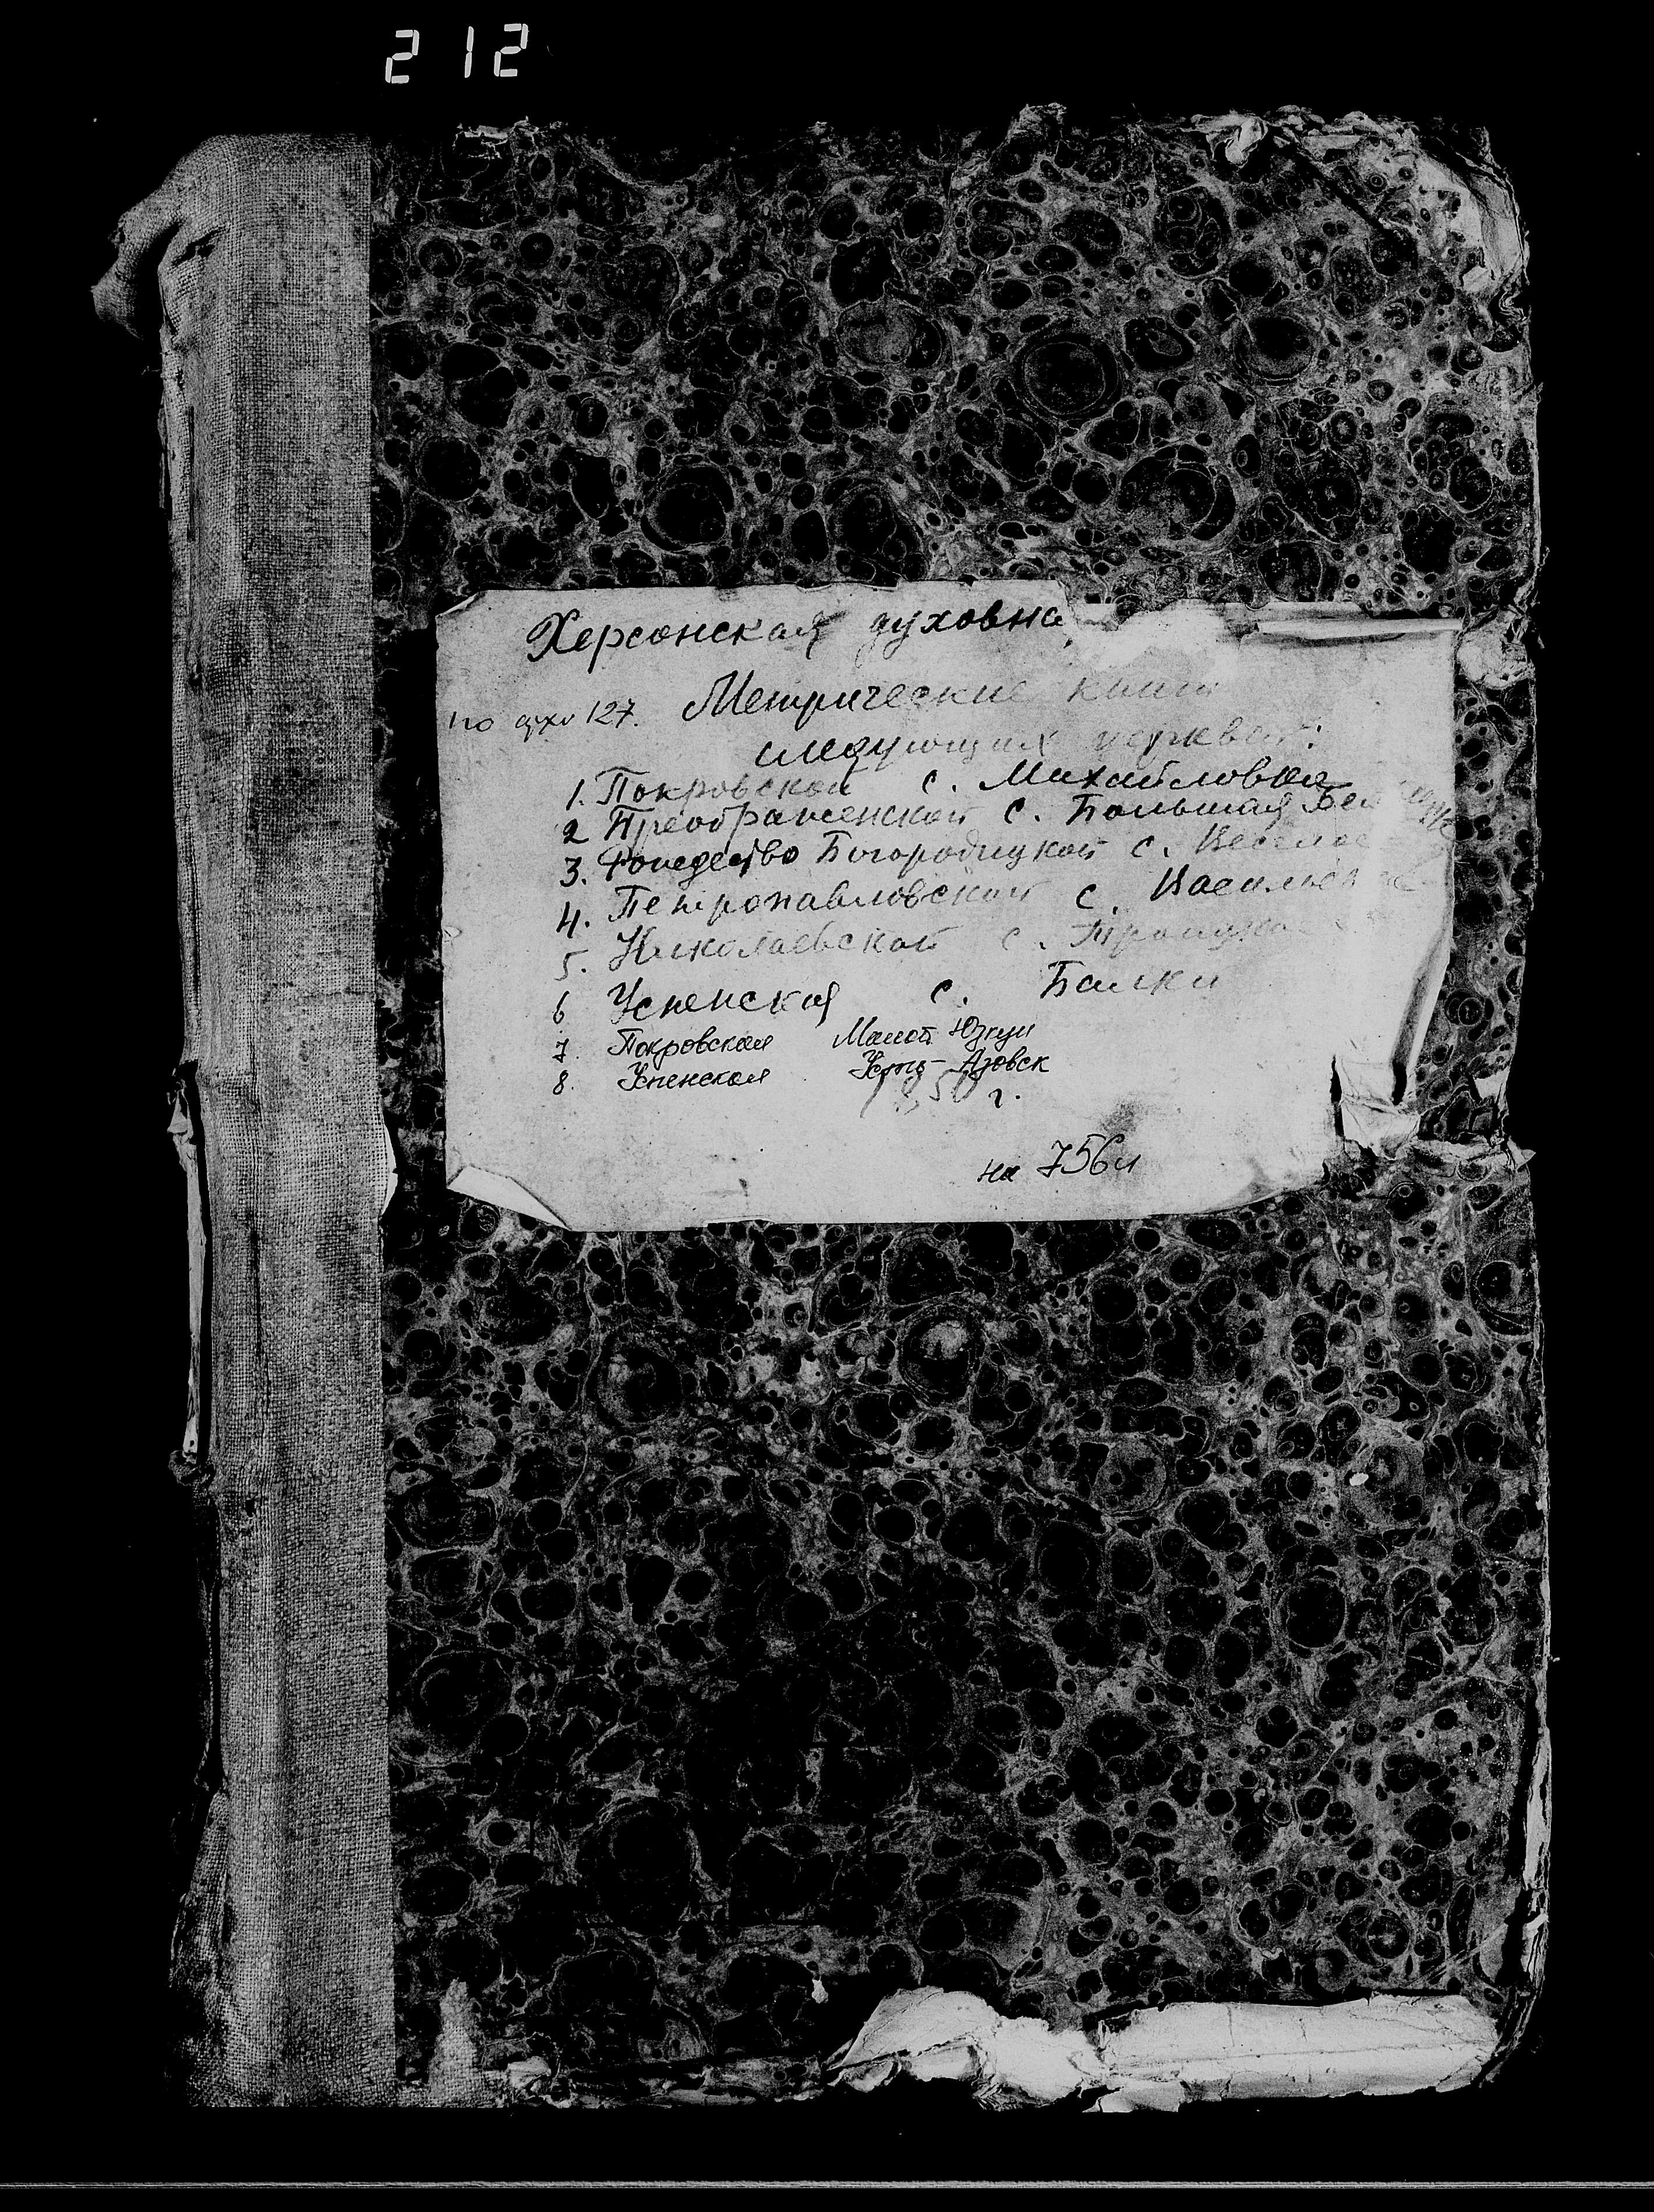 212
Херсонская духовна
Метрические книги
по архи 127.
следующих церквей:
1. Покровской с. Михайловка
2 Преображенской с. Большая Бел
3. Рождество Богородицкой с. Веселое
4. Петропавловской с. Васильевка
5. Николаевской с. Троицкое
6 Успенская с. Балки
7. Покровская Малой
8. Успенская Усть-Азовск
г.
на 756 л